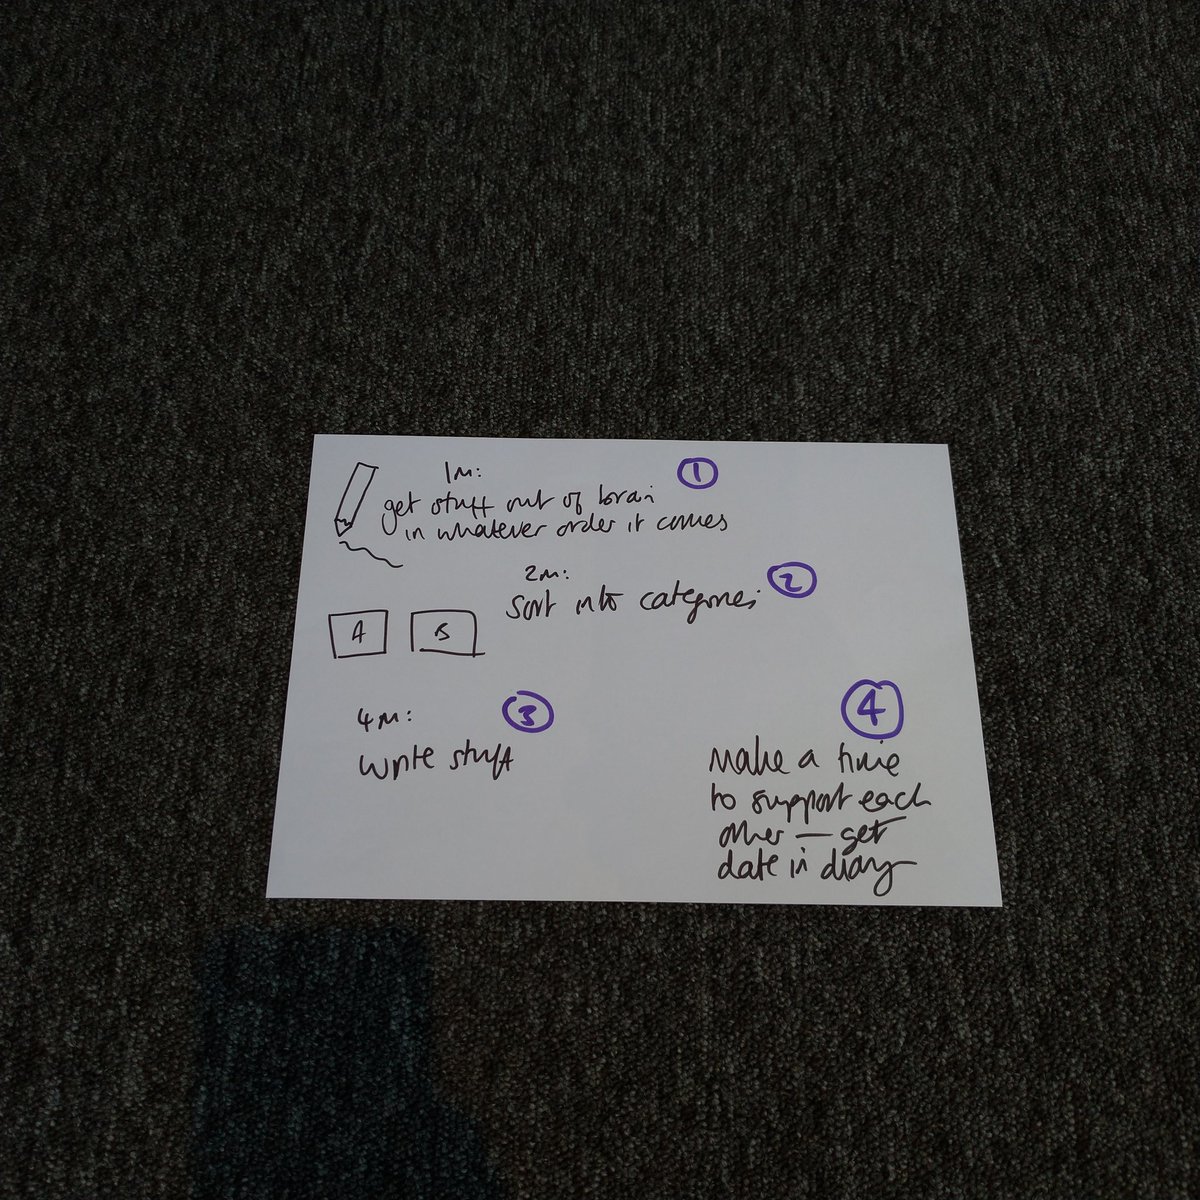 1m: 1
get stuff out of brain
in whatever order it comes
2m: 2
sort into categories
A B
4m: 3
write stuff
4
Make a time
to support each
other — get
date in diary